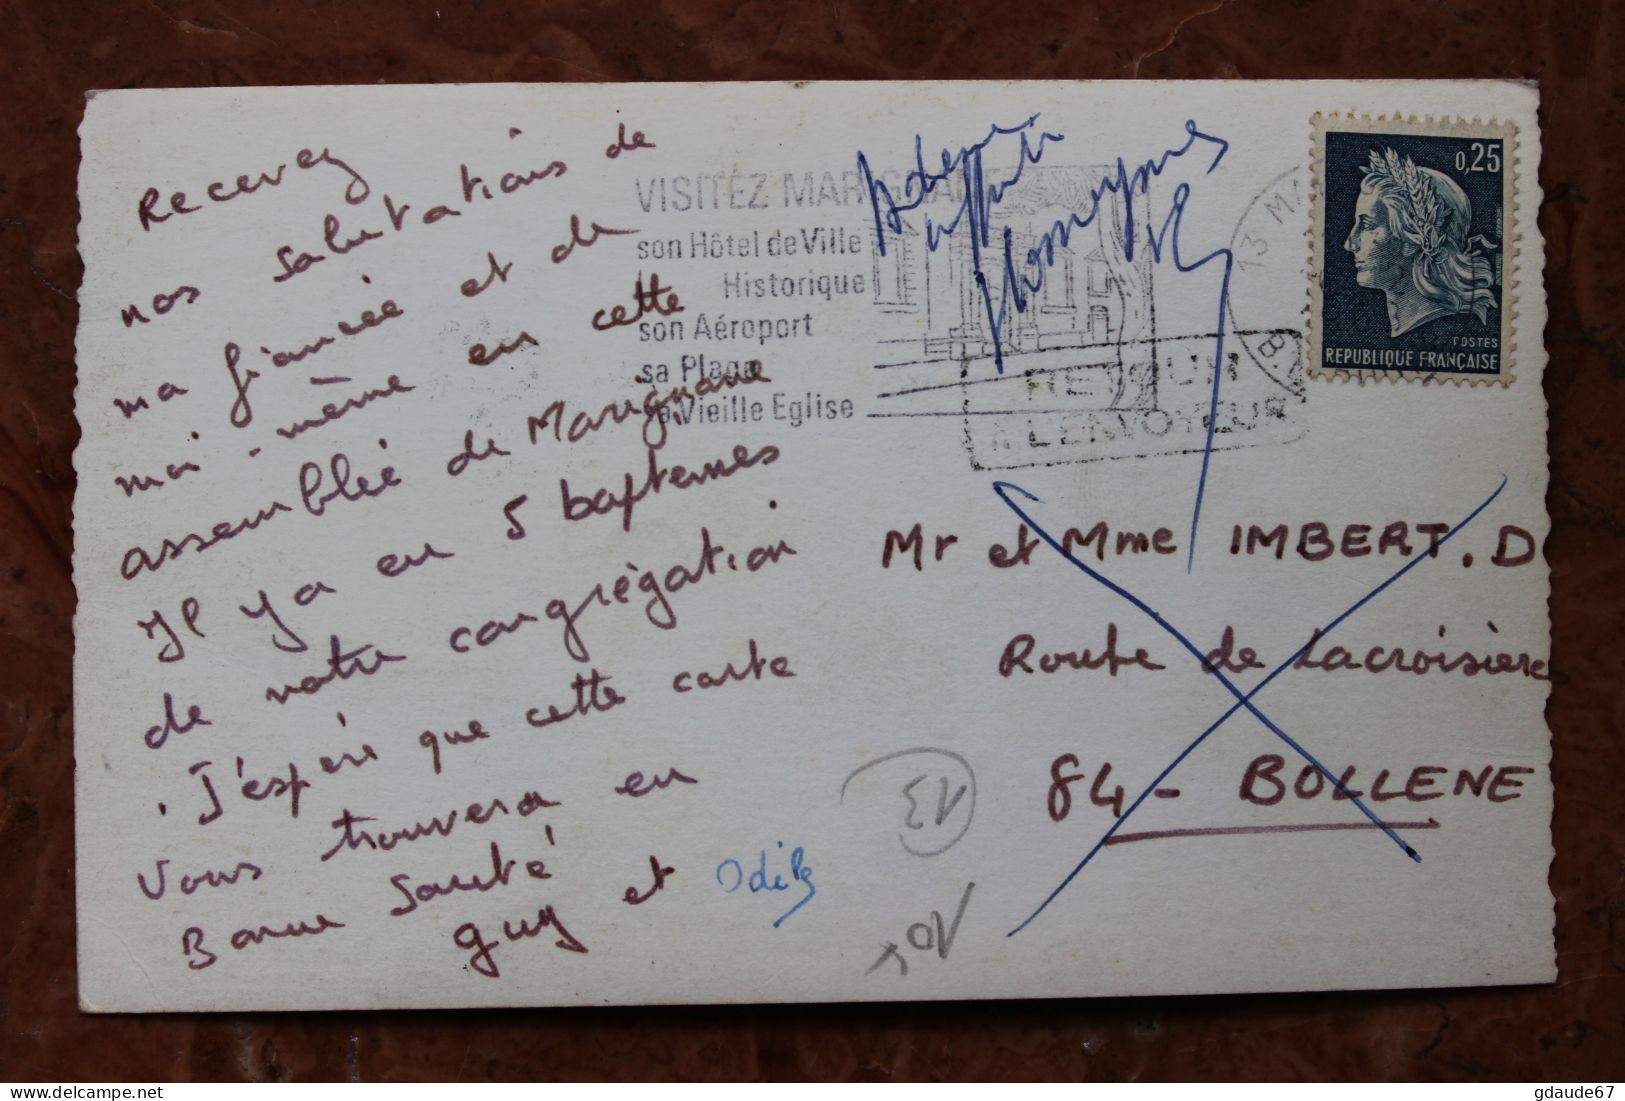 Recevez
nos salutations de
ma fiancée et de
moi-même en cette
assemblée de Marignane
Il y a eu 5 baptemes
de notre congrégation
. J'espère que cette carte
vous trouvera en
Bonne Santé
guy et Odile
VISITEZ MARIGNANE
son Hôtel de Ville
Historique
son Aéroport
sa Plage
sa Vieille Eglise
RETOUR
A L'ENVOYEUR
13
0,25
POSTES
REPUBLIQUE FRANÇAISE
Mr et Mme IMBERT. D
Route de Lacroisière
84 - BOLLENE
13
10F
delcampe.net
gdaude67